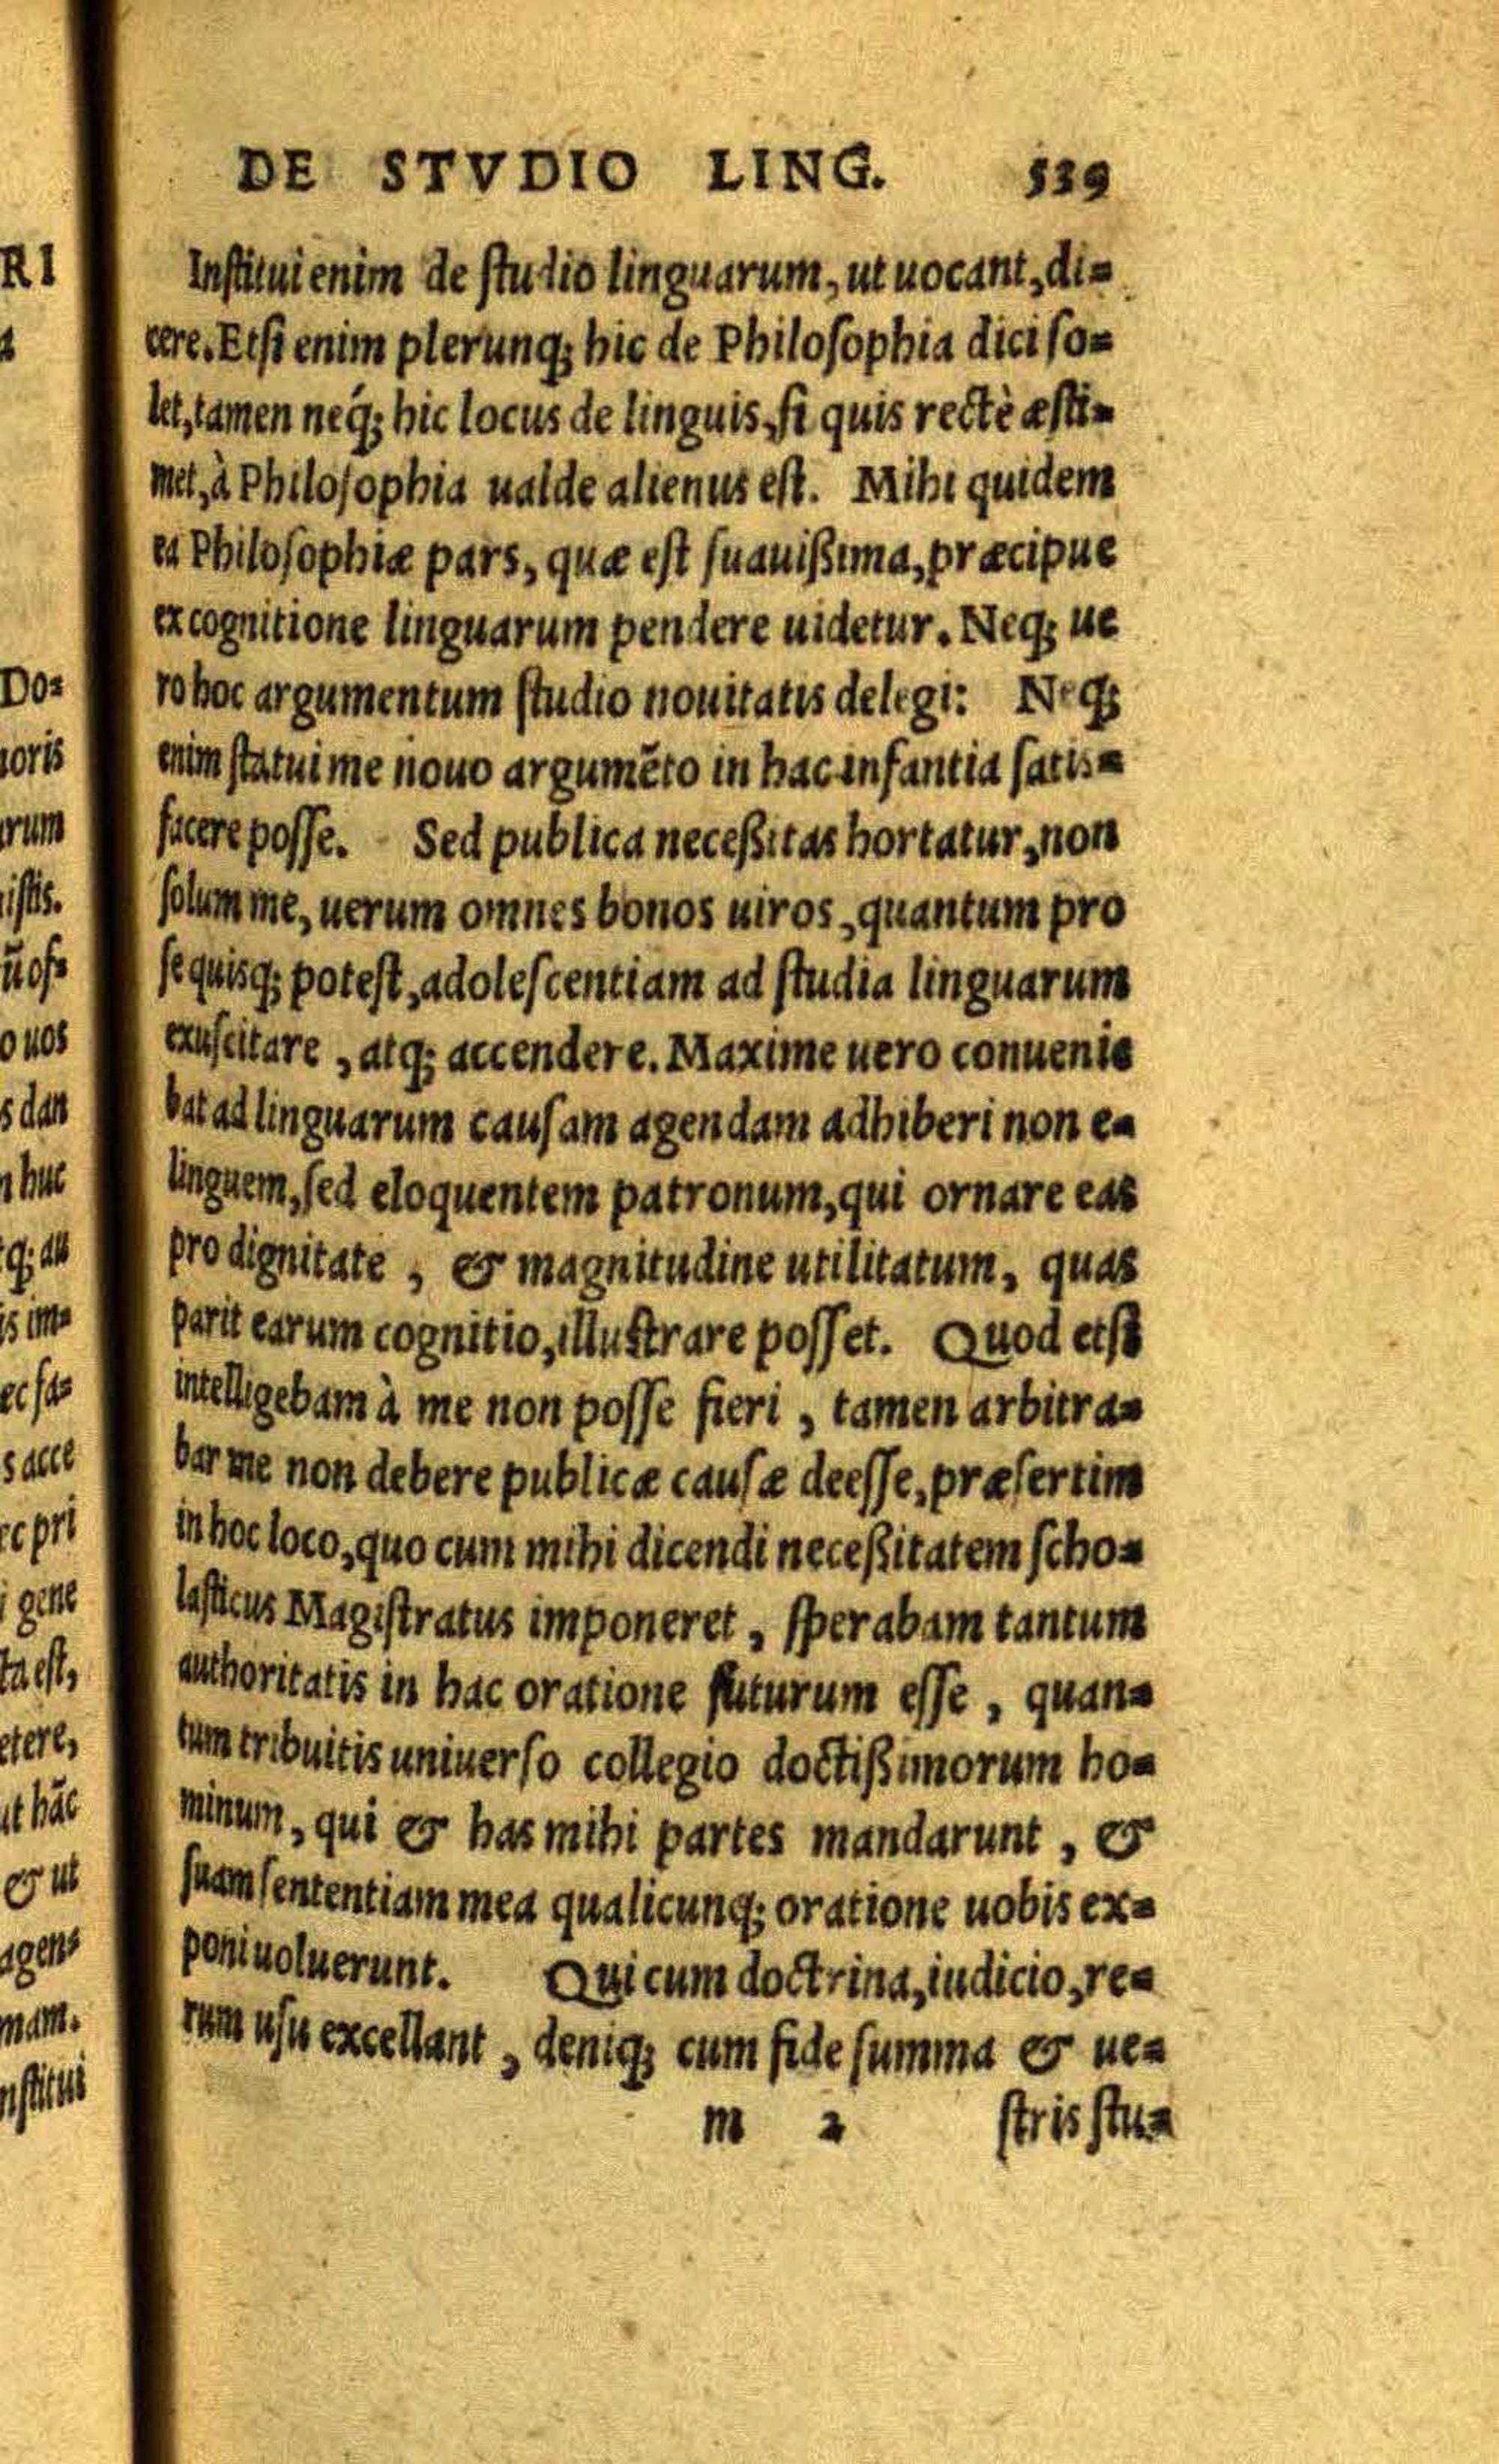 DE STVDIO LING. 539
Instituienim de studio linguarum, ut uocant, di-
cere. Etsi enim plerunq; hic de Philosophia dici so-
let, tamen neq́; hic locus de linguis, si quis rectè æsti-
met, à Philosophia ualde alienus est. Mihi quidem
ea Philosophiæ pars, quæ est suauißima, præcipue
ex cognitione linguarum pendere uidetur. Neq; ue
ro hoc argumentum studio nouitatis delegi: Neq;
enim statui me nouo argumẽto in hac infantia satis-
facere posse. Sed publica neceßitas hortatur, non
solum me, uerum omnes bonos uiros, quantum pro
se quisq; potest, adolescentiam ad studia linguarum
exuscitare, atq; accendere. Maxime uero conuenie
bat ad linguarum causam agendam adhiberi non e-
linguem, sed eloquentem patronum, qui ornare eas
pro dignitate, & magnitudine utilitatum, quas
parit earum cognitio, illustrare posset. Quod etsi
intelligebam à me non posse fieri, tamen arbitra-
bar me non debere publicæ causæ deesse, præsertim
in hoc loco, quo cum mihi dicendi neceßitatem scho-
lasticus Magistratus imponeret, sperabam tantum
authoritatis in hac oratione futurum esse, quan-
tum tribuitis uniuerso collegio doctißimorum ho-
minum, qui & has mihi partes mandarunt, &
suam sententiam mea qualicunq; oratione uobis ex-
poni uoluerunt. Qui cum doctrina, iudicio, re-
rum usu excellant, deniq; cum fide summa & ue-
m 2 stris stu-
RI
Do-
ioris
rum
istis.
ũ of-
o uos
s dan
n huc
q; au
is im-
ec fa-
s acce
rc pri
i gene
ta est,
etere,
ut hãc
& ut
agen-
mam.
nstitui